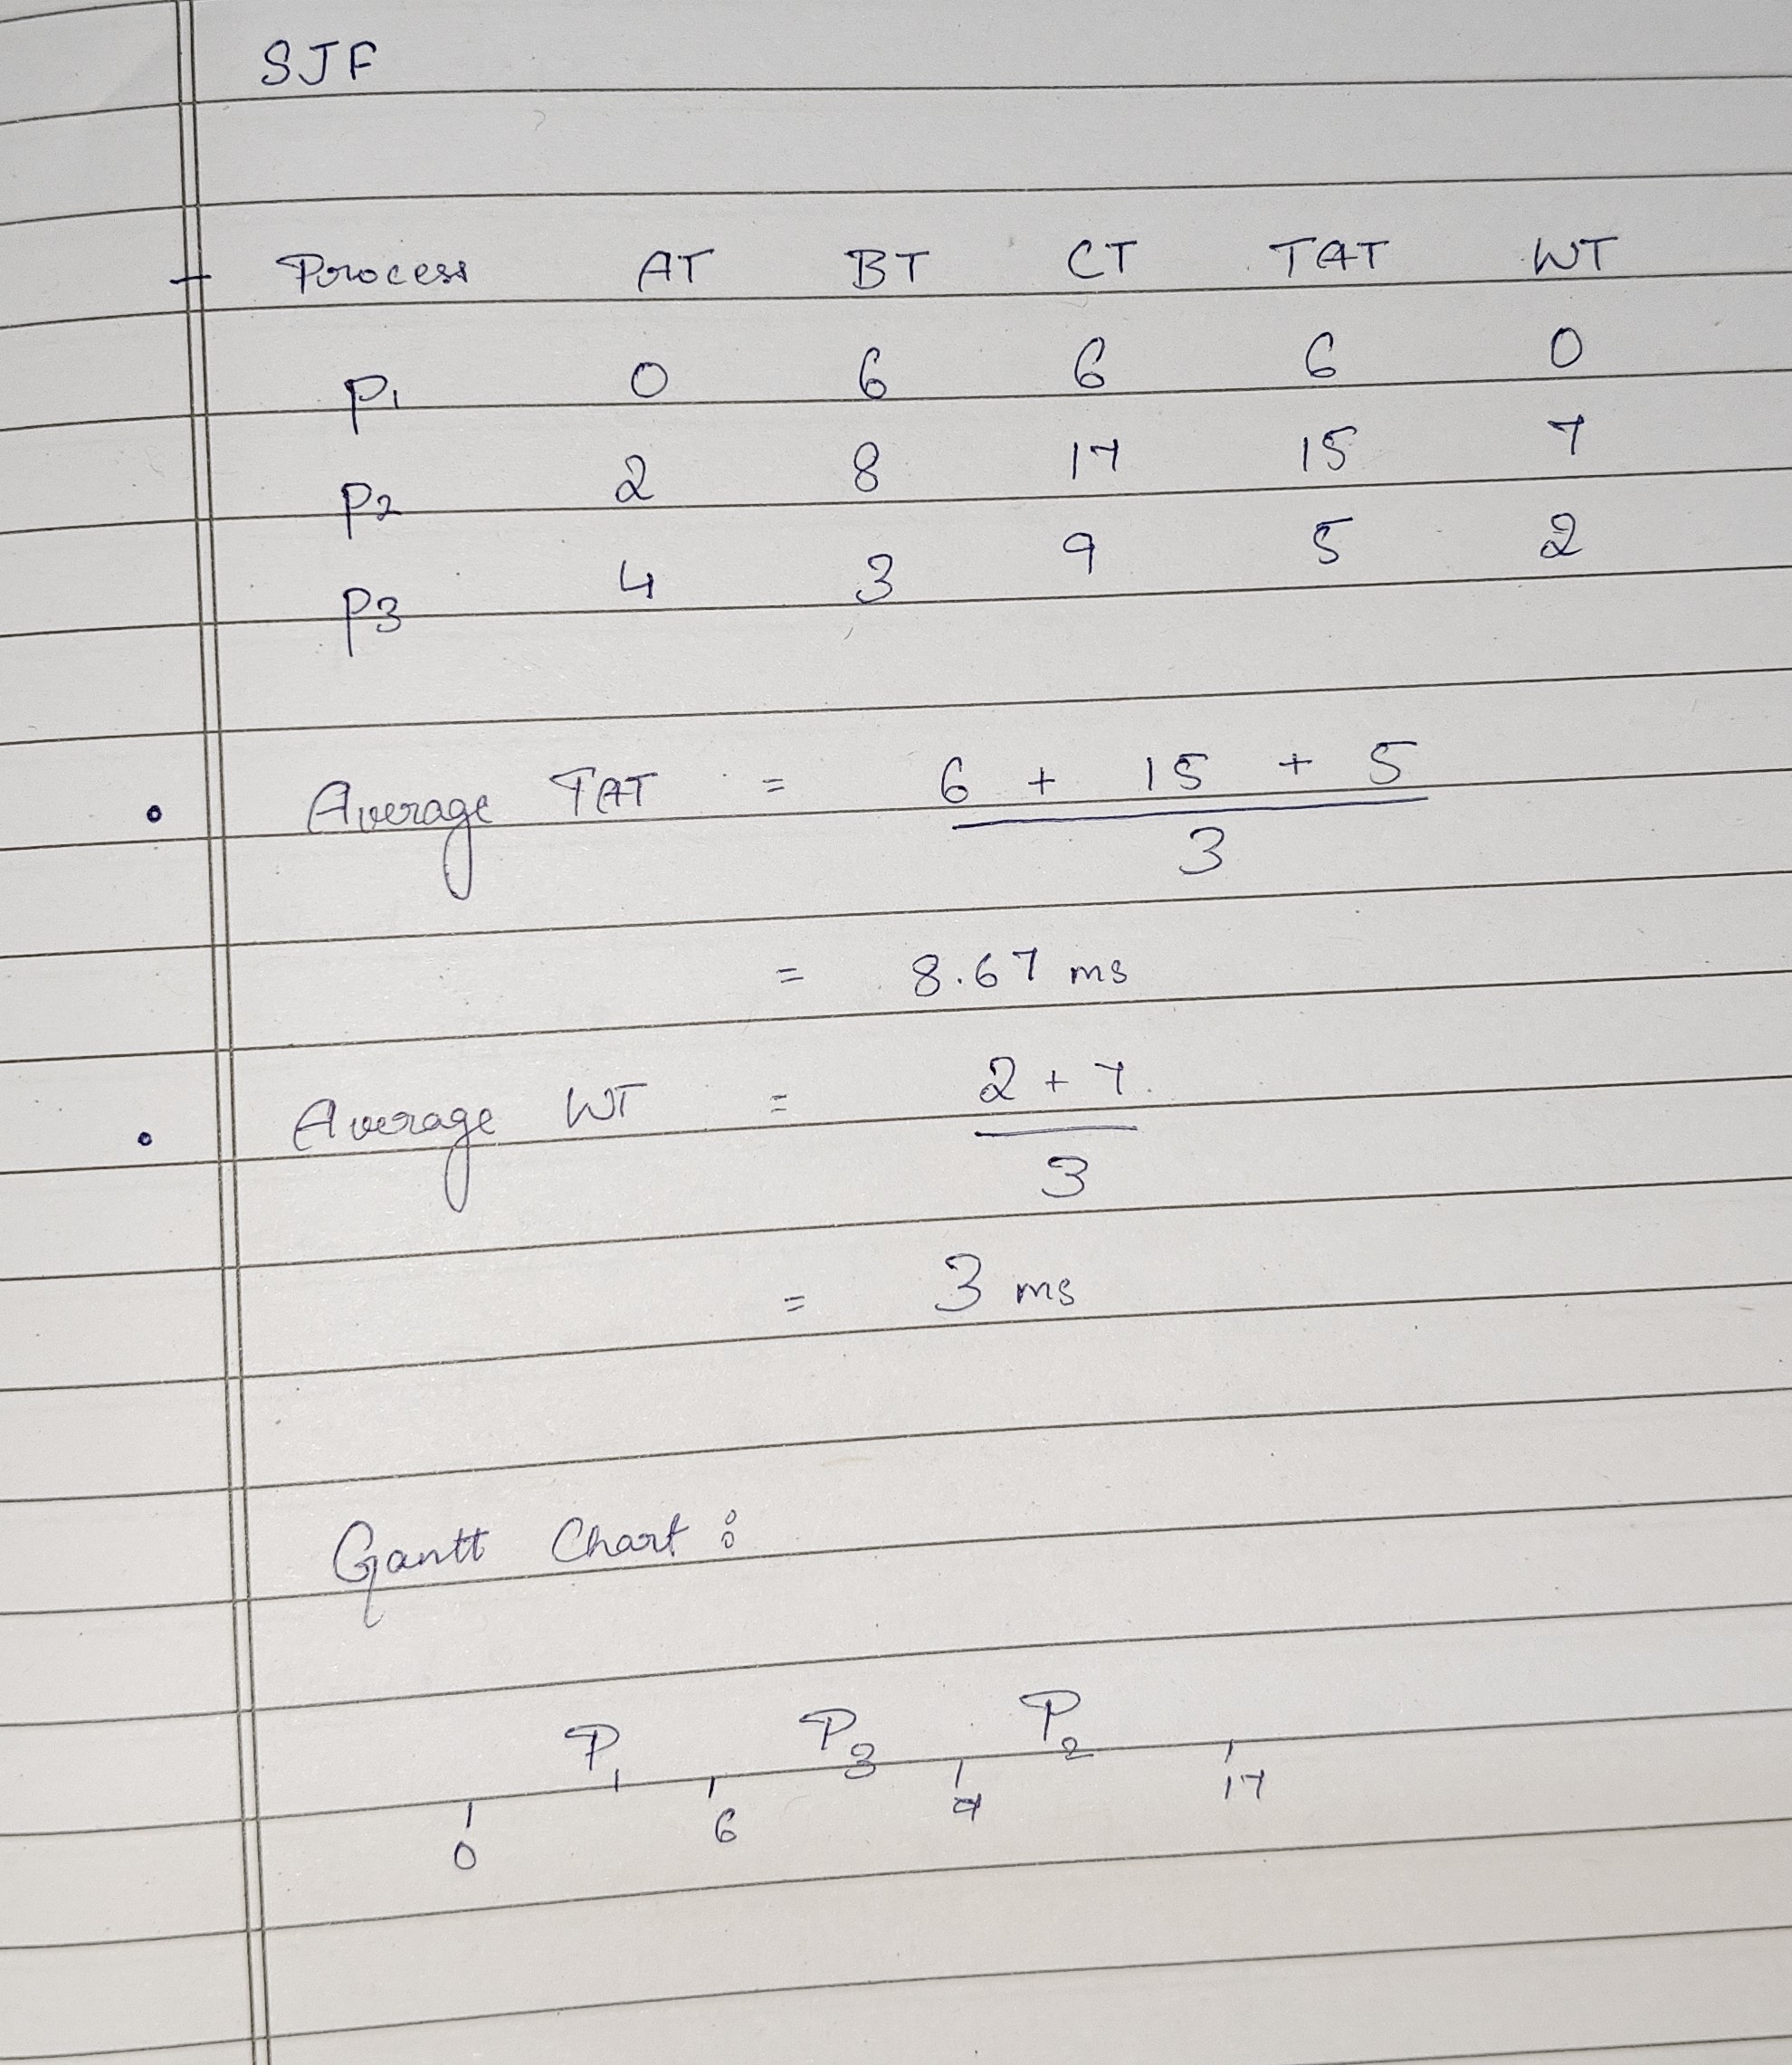 SJF
Process AT BT CT TAT WT
P1 0 6 6 6 0
P2 2 8 17 15 7
P3 4 3 9 5 2
• Average TAT = 6 + 15 + 5
3
= 8.67 ms
• Average WT = 2 + 7
3
= 3 ms
Gantt Chart :
P1 P3 P2
0 6 9 17